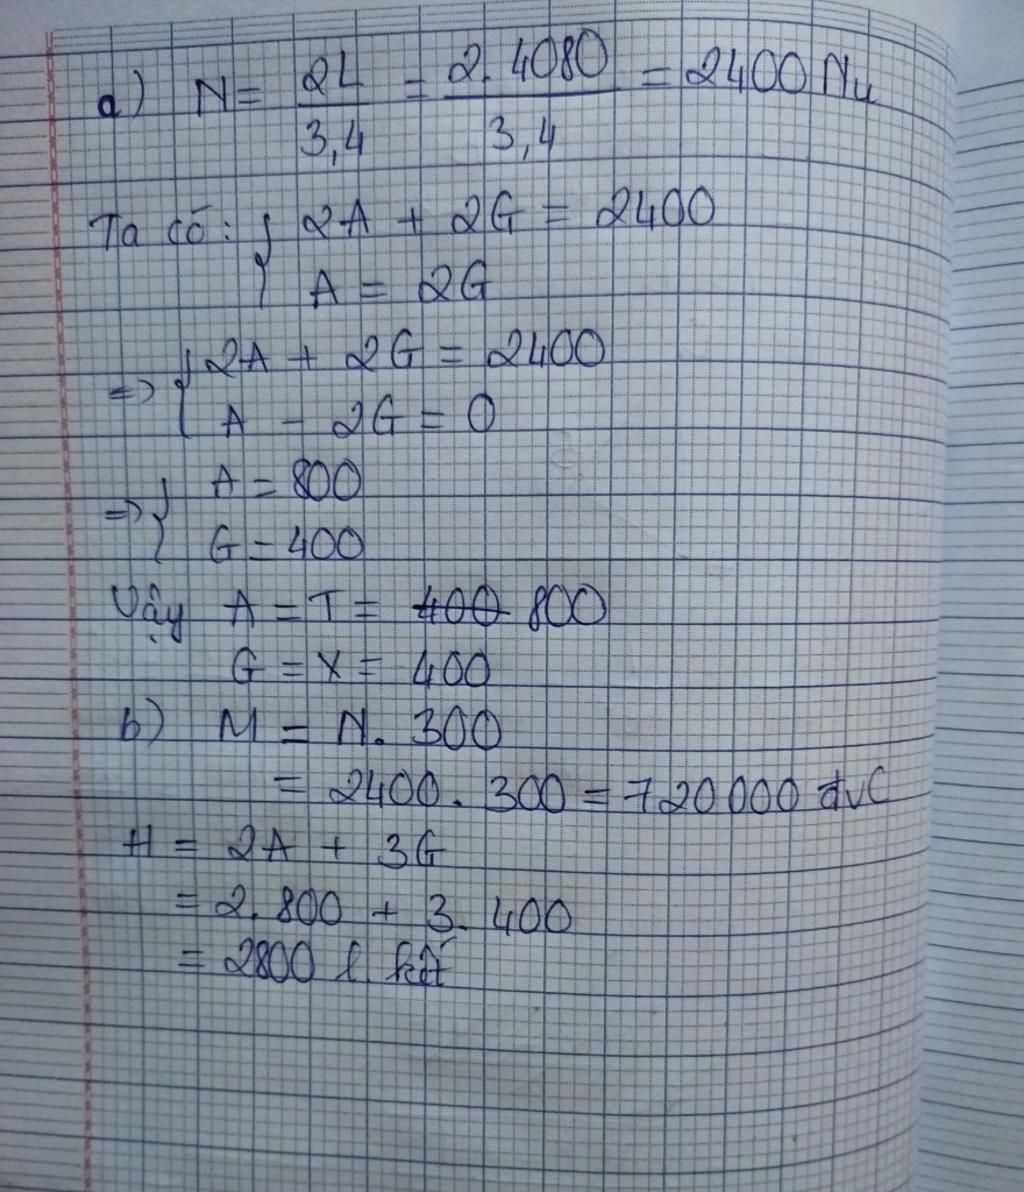 a) N = 2L / 3,4 = 2. 4080 / 3,4 = 2400 Nu
Ta có: { 2A + 2G = 2400
A = 2G
=> { 2A + 2G = 2400
A - 2G = 0
=> { A = 800
G = 400
Vậy A = T = ~~400~~ 800
G = X = 400
b) M = N. 300
= 2400. 300 = 720000 đvC
H = 2A + 3G
= 2. 800 + 3. 400
= 2800 l. kết